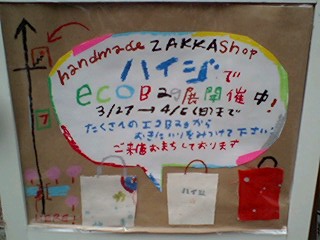 handmade ZAKKA Shop
ハイジで
ecoBag展開催中!
3/27→4/6(日)まで
たくさんのエコBagから
おきにいりをみつけて下さい
ご来店おまちしております
ハイジ